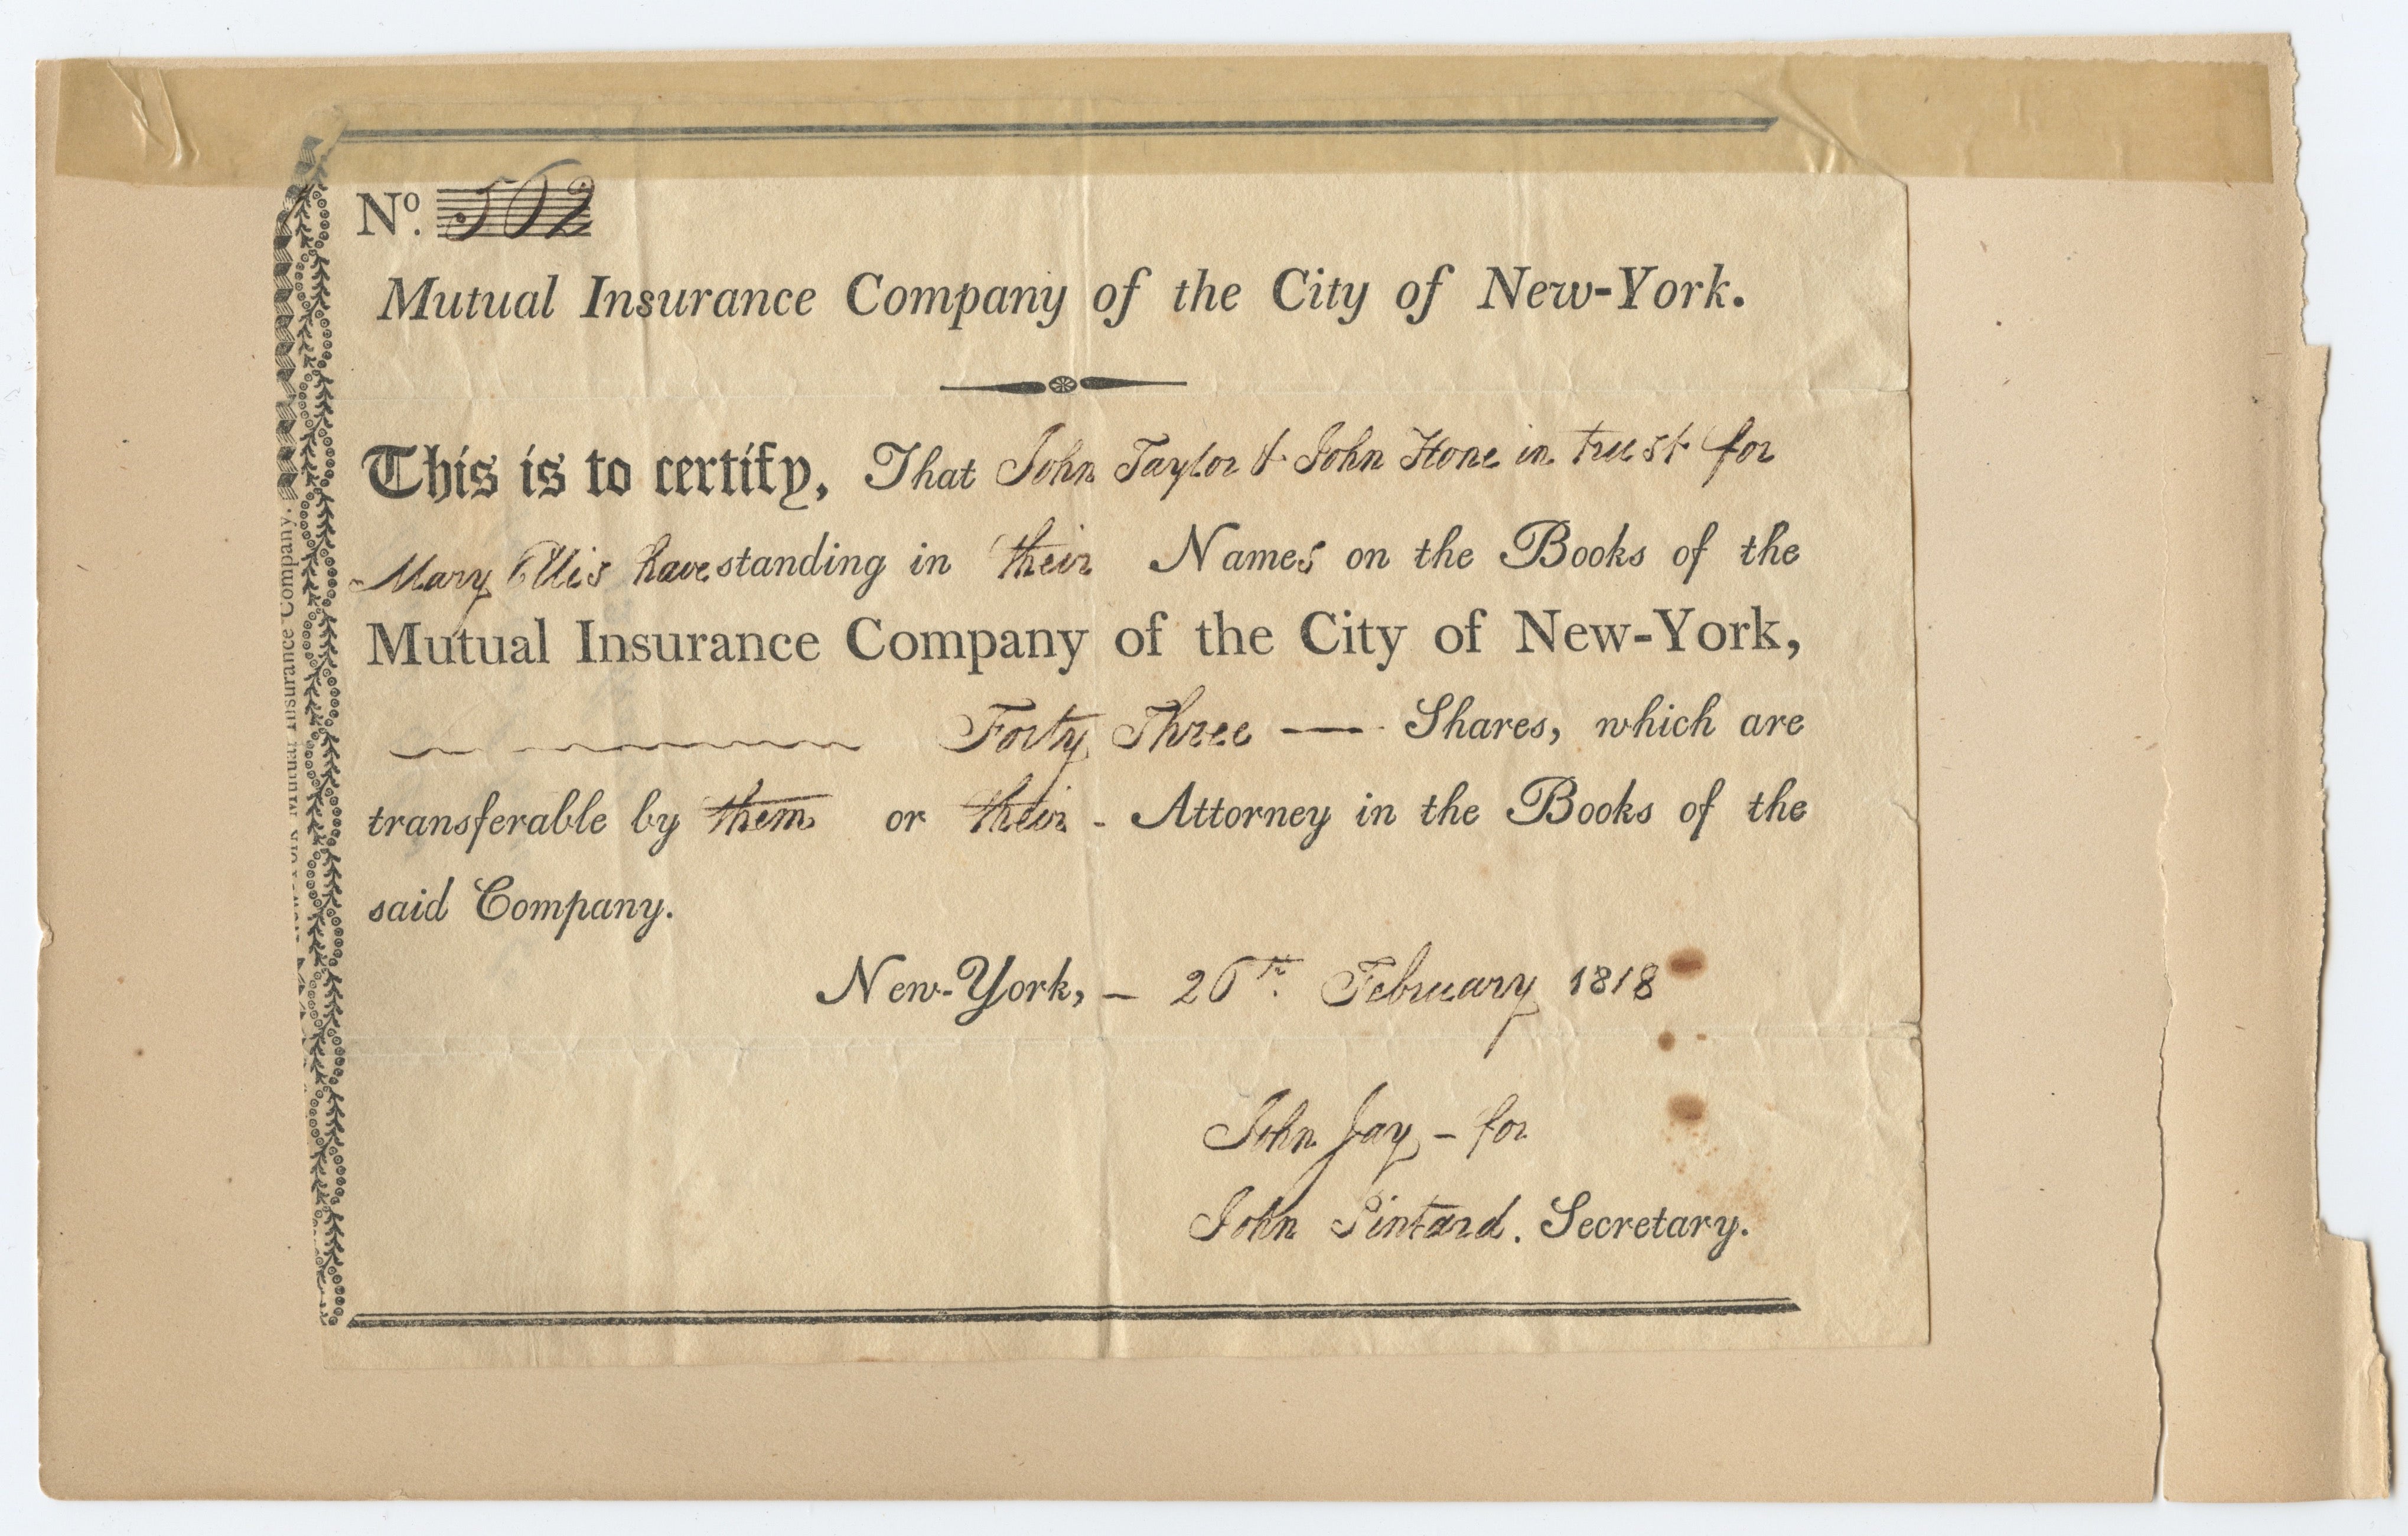 No. 562
Mutual Insurance Company of the City of New-York.
This is to certify, That John Taylor & John Hone in trust for
Mary Ellis have standing in their Names on the Books of the
Mutual Insurance Company of the City of New-York,
Forty Three — Shares, which are
transferable by them or their - Attorney in the Books of the
said Company.
New-York, - 26th. February 1818
John Jay - for
John Pintard. Secretary.
Insurance Company.